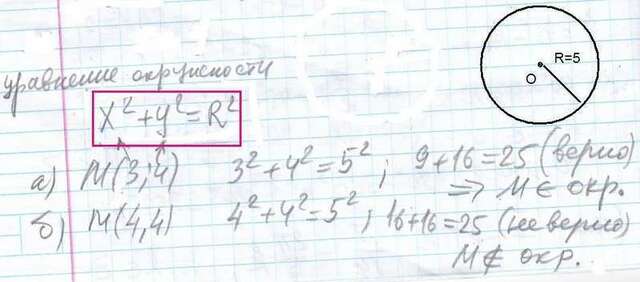 R=5
O
уравнение окружности
x²+y²=R²
а) M(3;4) 3²+4²=5²; 9+16=25 (верно)
=> M∈ окр.
б) M(4,4) 4²+4²=5²; 16+16=25 (не верно)
M∉ окр.